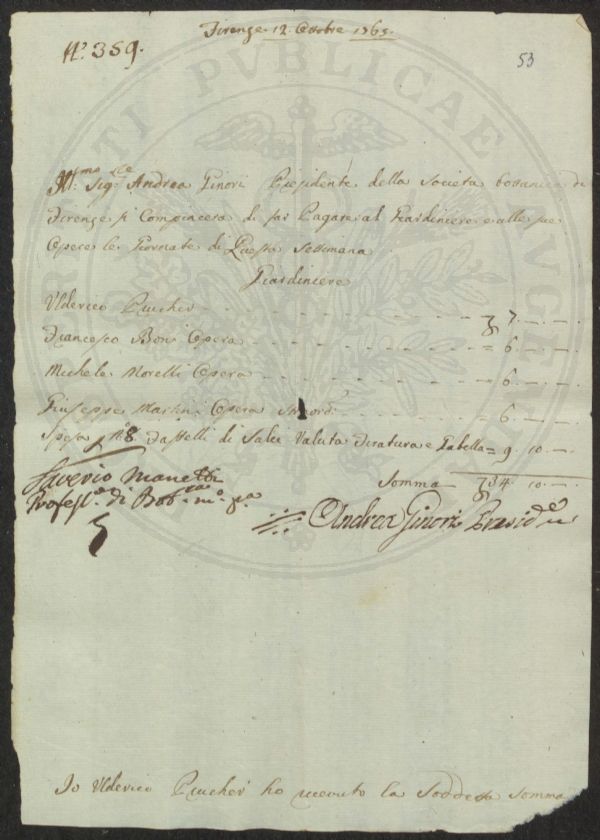 Firenze 12. Ottobre 1765.
N.º 359.
53
Ill.mo Sig.re Andrea Ginori Presidente della Societa bottanica di
Firenze si Compiacera di far Pagare al Giardiniere e alle sue
Opere le Giornate di Questa Settimana
Giardiniere
Ulderico Prucher - - - - - 7. - -
Francesco Boni Opera - - - - = 6. - -
Michele Morelli Opera - - - - = 6. - -
Giuseppe Martini Opera Straord.º - - - = 6. - -
Spesa N.º 8 di Salci Valuta e Gabella = 9. 10. -
Somma - 34. 10. -
Saverio Manetti
Profess.e di Bot.ca m.º p.a
Andrea Ginori Presid.e
Io Ulderico Prucher ho ricevuto la Soddetta Somma
HORTATI PVBLICAE AVGENDAE